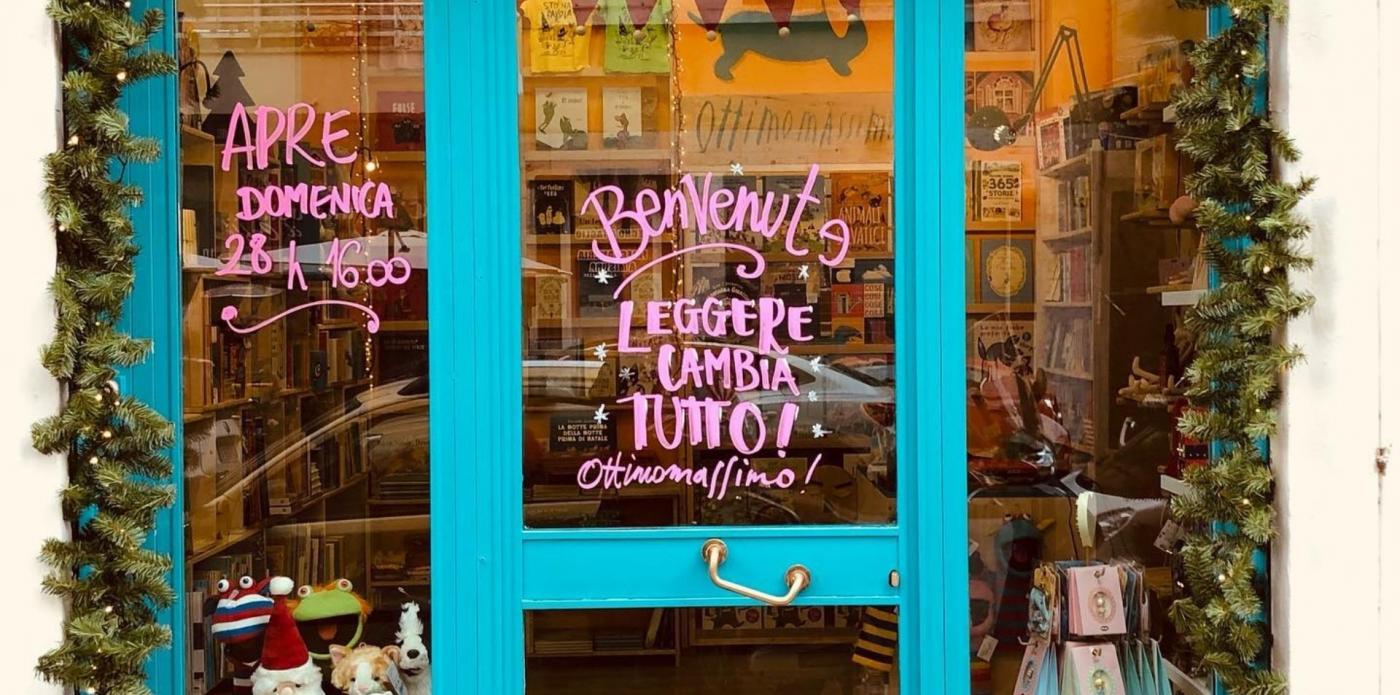 APRE
DOMENICA
28 h 16:00
Ottimomassimo
BenVenutə
LEGGERE
CAMBIA
TUTTO!
Ottimomassimo!
365
STORIE
ANIMALI
COSE
COSÌ
COSE
COSÀ
LA NOTTE PRIMA
DELLA NOTTE
PRIMA DI NATALE